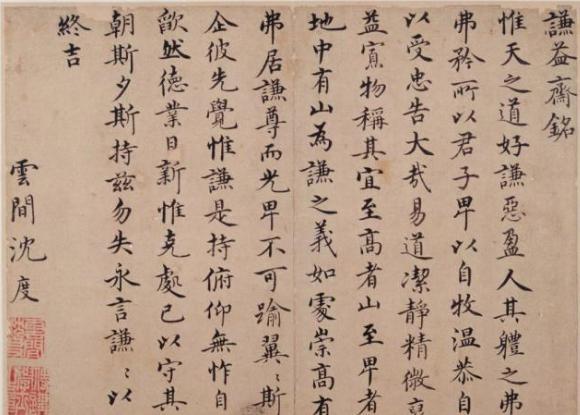 謙益齋銘
惟天之道好謙惡盈人其體之弗
弗矜所以君子卑以自牧温恭自
以受忠告大哉易道潔靜精微
益寡物稱其宜至高者山至卑者
地中有山為謙之義如處崇高有
弗居謙尊而光卑不可踰翼〻斯
企彼先覺惟謙是持俯仰無怍自
歉然德業日新惟克處己以守其
朝斯夕斯持茲勿失永言謙〻以
終吉
雲間沈度